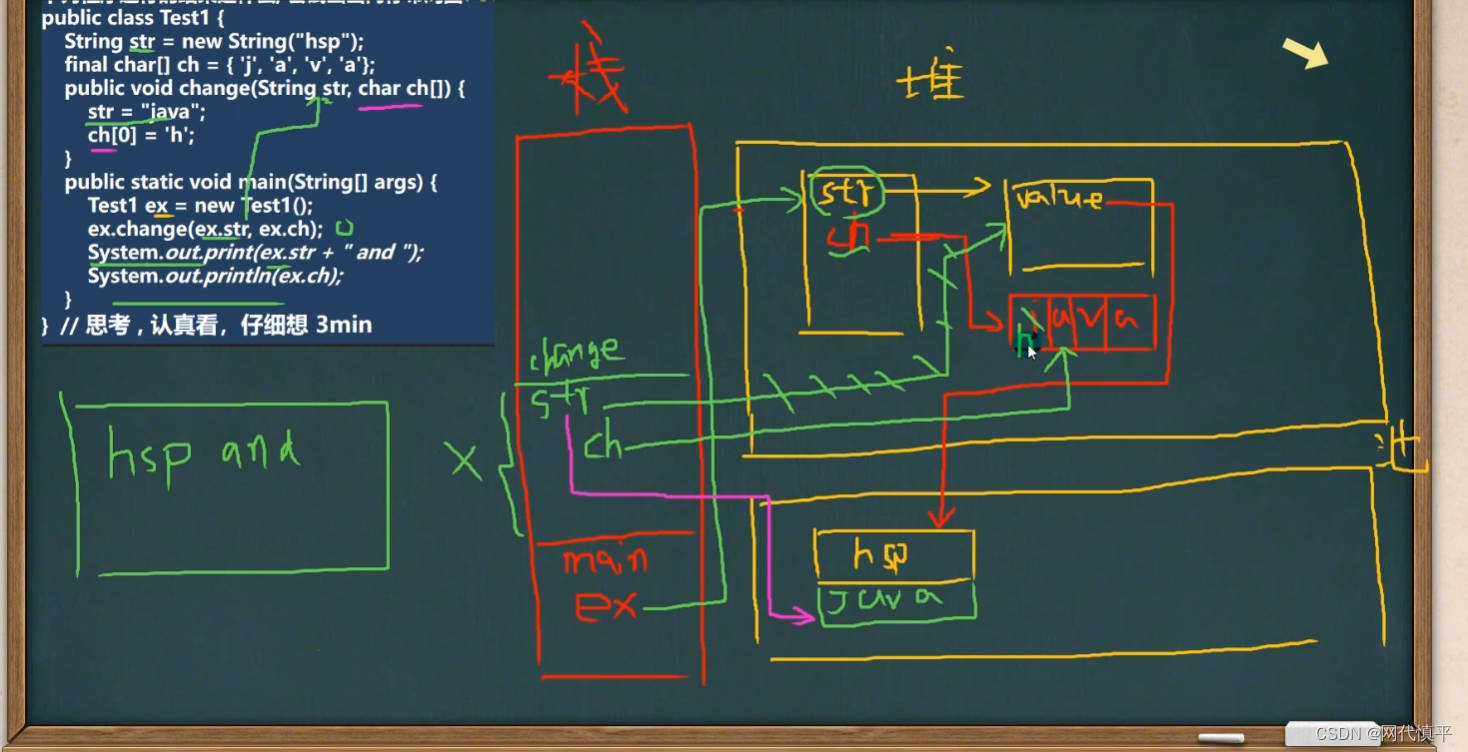 public class Test1 {
String str = new String("hsp");
final char[] ch = { 'j', 'a', 'v', 'a'};
public void change(String str, char ch[]) {
str = "java";
ch[0] = 'h';
}
public static void main(String[] args) {
Test1 ex = new Test1();
ex.change(ex.str, ex.ch);
System.out.print(ex.str + " and ");
System.out.println(ex.ch);
}
} // 思考，认真看，仔细想 3min
栈
堆
str
ch
value
h a v a
change
str
ch
hsp and
X
main
ex
hsp
java
CSDN @网代慎平